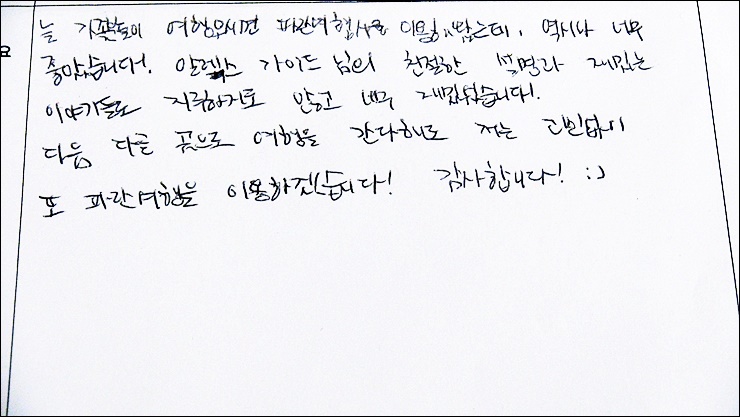 늘 가족들이 여행오시면 파란여행사를 이용해 왔는데, 역시나 너무
좋았습니다!. 알렉스 가이드님의 친절한 설명과 재밌는
이야기들로 지루하지도 않고 너무 재밌었습니다!.
다음 다른 곳으로 여행을 간다해도 저는 고민없이
또 파란여행을 이용하겠습니다! 감사합니다! :)
요